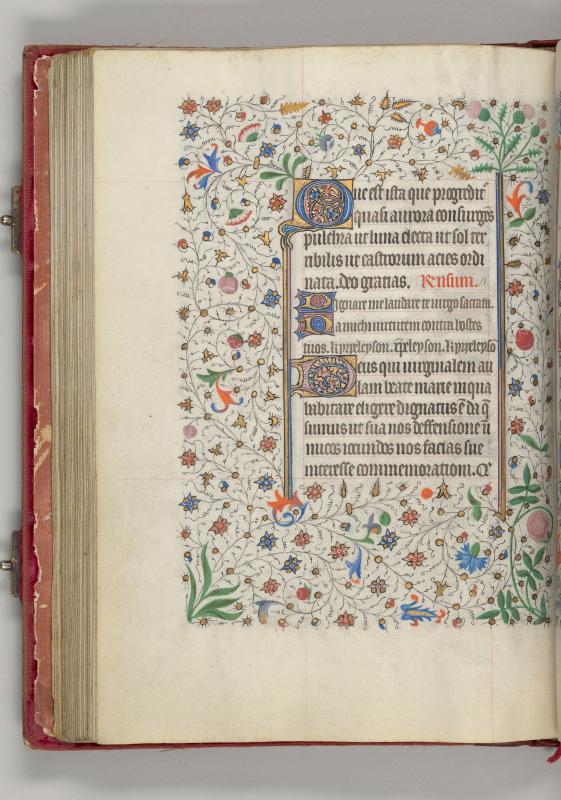 Que est ista que progredit᷑
quasi aurora consurges
pulchra ut luna electa ut sol ter
ribilis ut castrorum acies ordi
nata. Deo gracias. R̃nsum.
Dignare me laudare te uirgo sacrata.
Da michi uirtutem contra hostes
tuos. Kyryeleyson. xp̃eleyson. Kyryeleyso
Deus qui uirginalem au
lam beate marie in qua
habitare eligere dignatus ē da q̃
sumus ut sua nos deffensione ū
nuitos iocundos nos facias sue
interesse commemorationi. Q'